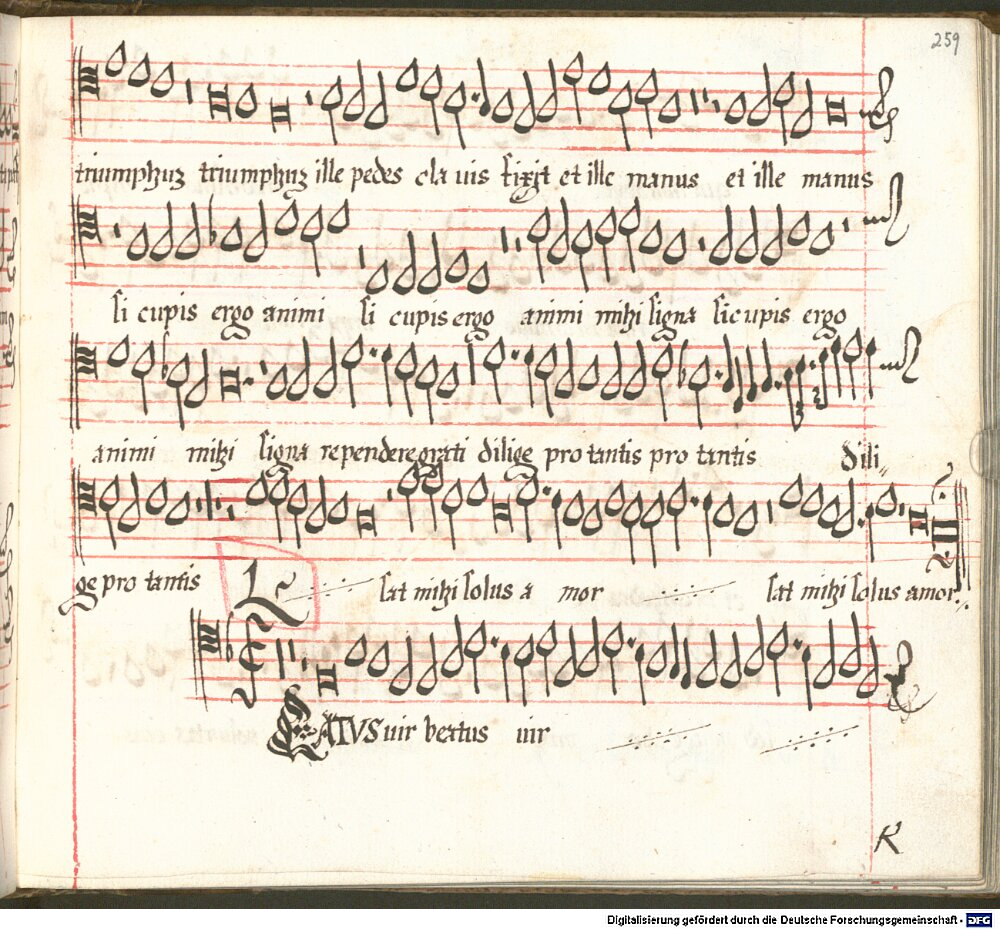 259
triumphus triumphus ille pedes cla uis fixit et ille manus et ille manus
si cupis ergo animi si cupis ergo animi mihi signa si cupis ergo
animi mihi signa rependere grati dilige pro tantis pro tantis dili
ge pro tantis sat mihi solus a mor sat mihi solus amor
BEATVS uir beatus uir
K
Digitalisierung gefördert durch die Deutsche Forschungsgemeinschaft - DFG